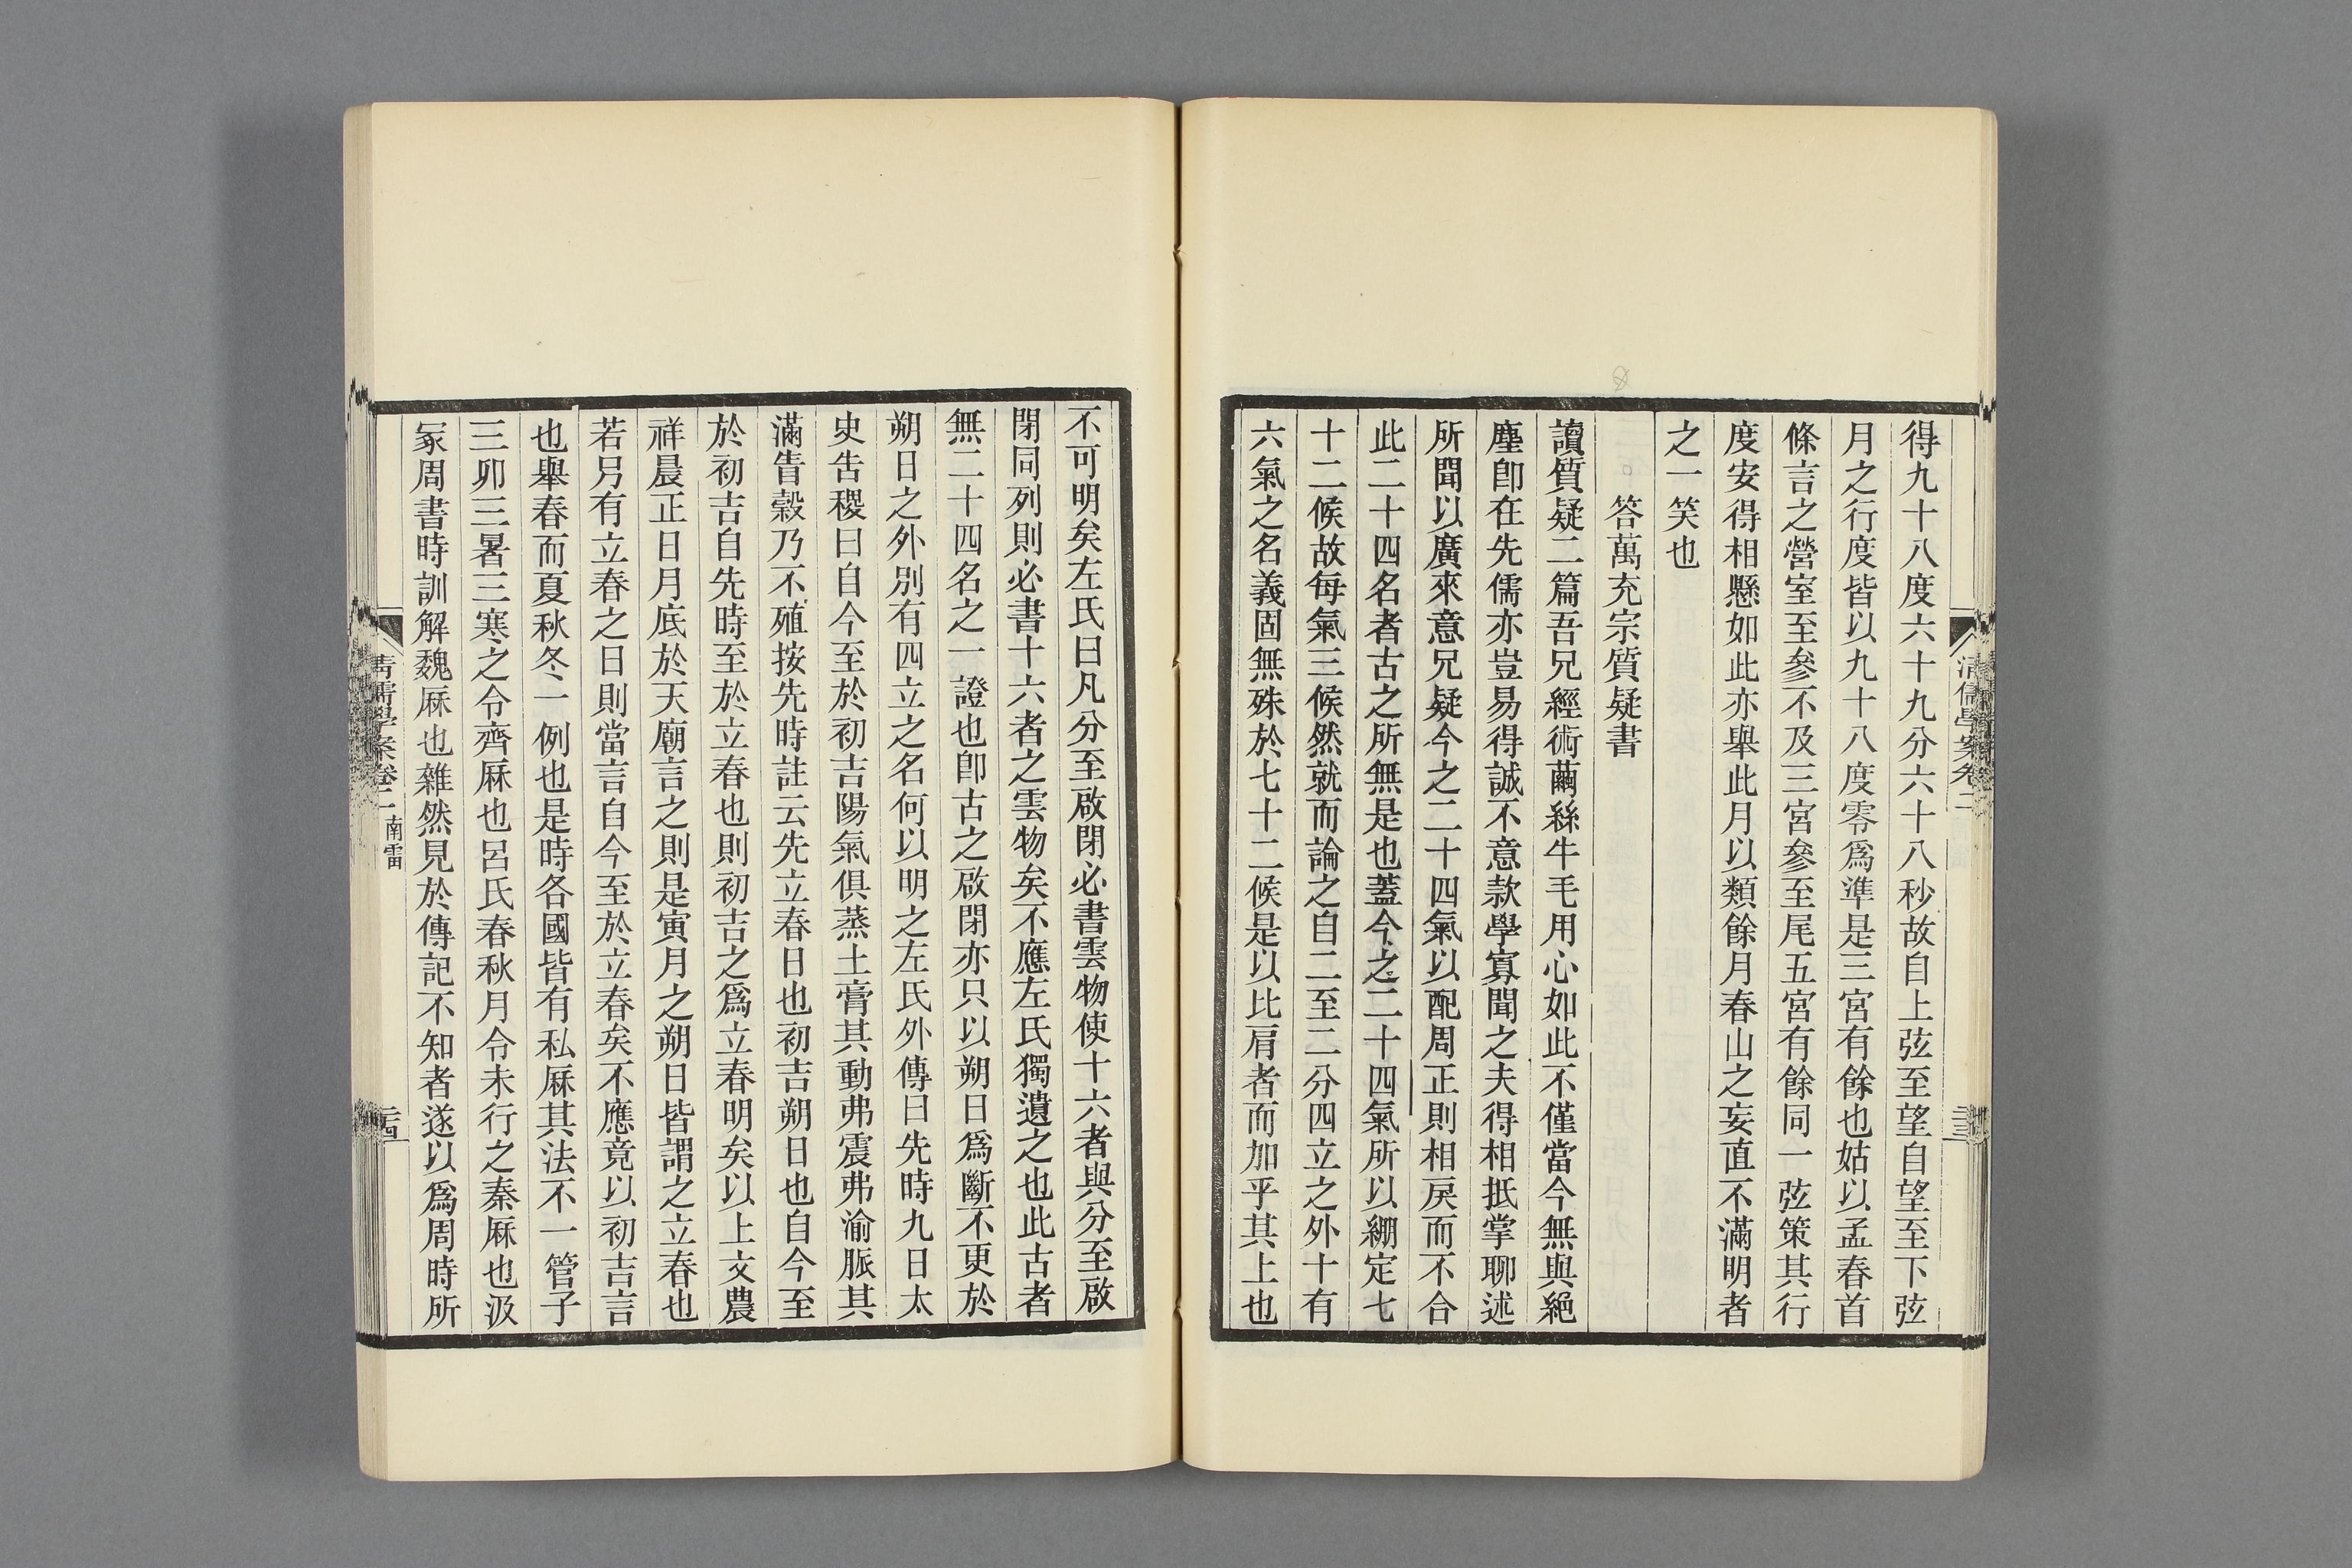 得九十八度六十九分六十八秒故自上弦至望自望至下弦
月之行度皆以九十八度零爲準是三宮有餘也姑以孟春首
條言之營室至參不及三宮參至尾五宮有餘同一弦策其行
度安得相懸如此亦舉此月以類餘月春山之妄直不滿明者
之一笑也
答萬充宗質疑書
讀質疑二篇吾兄經術繭絲牛毛用心如此不僅當今無與絕
塵卽在先儒亦豈易得誠不意款學寡聞之夫得相抵掌聊述
所聞以廣來意兄疑今之二十四氣以配周正則相戾而不合
此二十四名者古之所無是也蓋今之二十四氣所以綳定七
十二候故每氣三候然就而論之自二至二分四立之外十有
六氣之名義固無殊於七十二候是以比肩者而加乎其上也
清儒學案卷二
三三
不可明矣左氏曰凡分至啟閉必書雲物使十六者與分至啟
閉同列則必書十六者之雲物矣不應左氏獨遺之也此古者
無二十四名之一證也卽古之啟閉亦只以朔日爲斷不更於
朔日之外別有四立之名何以明之左氏外傳曰先時九日太
史告稷曰自今至於初吉陽氣俱蒸土膏其動弗震弗渝脈其
滿眚穀乃不殖按先時註云先立春日也初吉朔日也自今至
於初吉自先時至於立春也則初吉之爲立春明矣以上文農
祥晨正日月底於天廟言之則是寅月之朔日皆謂之立春也
若另有立春之日則當言自今至於立春矣不應竟以初吉言
也舉春而夏秋冬一例也是時各國皆有私厤其法不一管子
三卯三暑三寒之令齊厤也呂氏春秋月令未行之秦厤也汲
冢周書時訓解魏厤也雜然見於傳記不知者遂以爲周時所
清儒學案卷二 南雷
三四